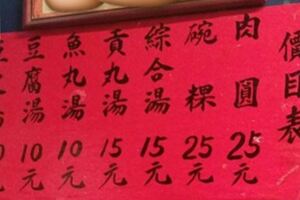 價目表
肉圓 25元
碗粿 25元
綜合湯 15元
貢丸湯 15元
魚丸湯 10元
豆腐湯 10元